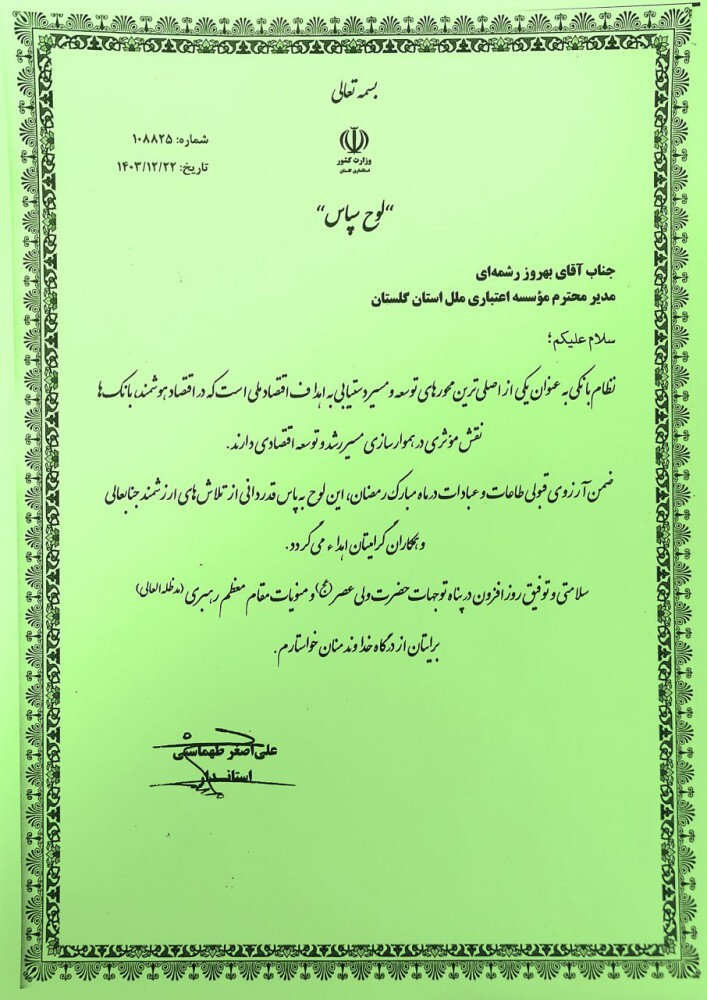 بسمه تعالی
شماره: ۱۰۸۸۲۵
تاریخ: ۱۴۰۳/۱۲/۲۲
وزارت کشور
استانداری گلستان
“لوح سپاس“
جناب آقای بهروز رشمه‌ای
مدیر محترم مؤسسه اعتباری ملل استان گلستان
سلام علیکم؛
نظام بانکی به عنوان یکی از اصلی‌ترین محورهای توسعه و مسیر دستیابی به اهداف اقتصاد ملی است که در اقتصاد هوشمند، بانک‌ها
نقش مؤثری در هموارسازی مسیر رشد و توسعه اقتصادی دارند.
ضمن آرزوی قبولی طاعات و عبادات در ماه مبارک رمضان، این لوح به پاس قدردانی از تلاش‌های ارزشمند جنابعالی
و همکاران گرامیتان اهداء می‌گردد.
سلامتی و توفیق روزافزون در پناه توجهات حضرت ولی عصر (عج) و منویات مقام معظم رهبری (مدظله العالی)
برایتان از درگاه خداوند منان خواستارم.
علی‌اصغر طهماسبی
استاندار